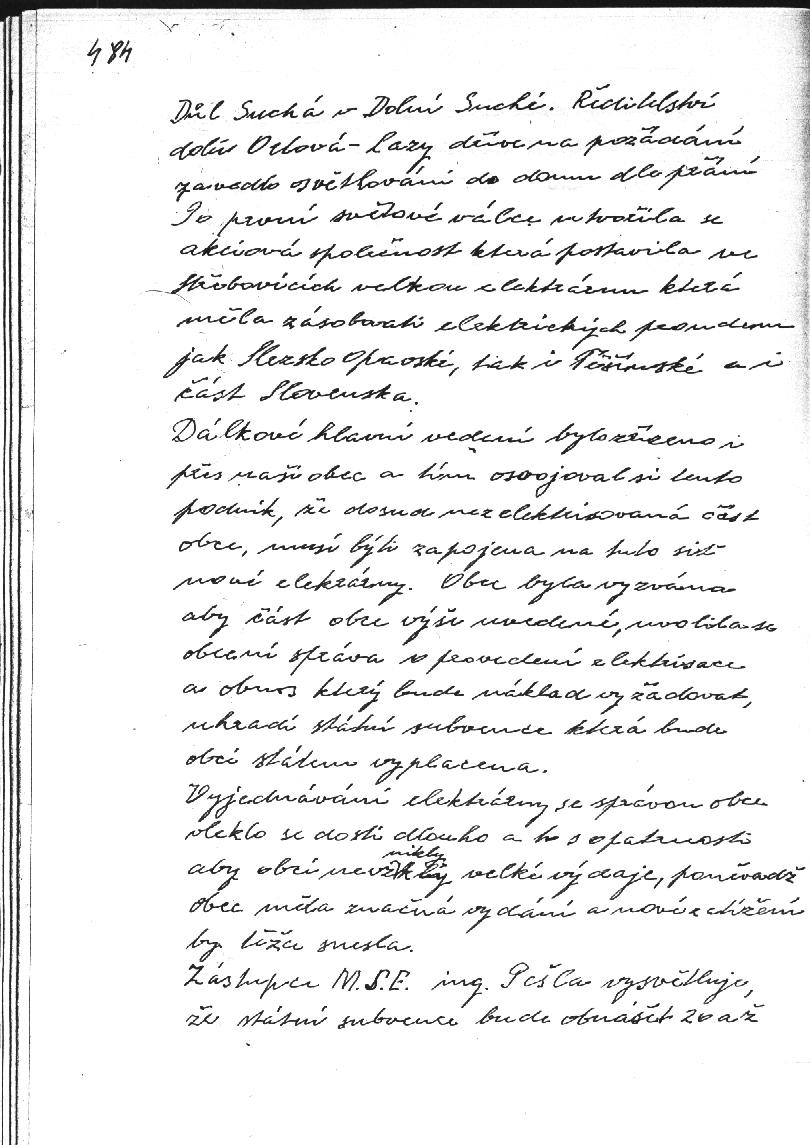 484
Důl Suchá v Dolní Suché. Ředitelství
dolů Orlová-Lazy dříve na požádání
zavedlo osvětlování do domu dle přání
Po první světové válce utvořila se
akciová společnost která postavila ve
Třebovicích velkou elektrárnu která
měla zásobovati elektrických proudem
jak Slezsko Opavské, tak i Těšínské a i
část Slovenska.
Dálkové hlavní vedení bylo zřízeno i
přes naši obec a tím osvojoval si tento
podnik, že dosud nezelektrisovaná část
obce, musí býti zapojena na tuto síť
nové elektrárny. Obec byla vyzvána
aby část obce výše uvedené, uvolila se
obecní správa v provedení elektrisace
a obnos který bude náklad vyžádovat,
uhradí státní subvence která bude
obci státem vyplacena.
Vyjednávání elektrárny se správou obce
vleklo se dosti dlouho a to s opatrnosti
nikly
aby obci nevz velké výdaje, poněvadž
obec měla značná vydání a nové zatížení
by těžce snesla.
Zástupce M.S.E. ing. Pešla vysvětluje,
že státní subvence bude obnášet 20 až